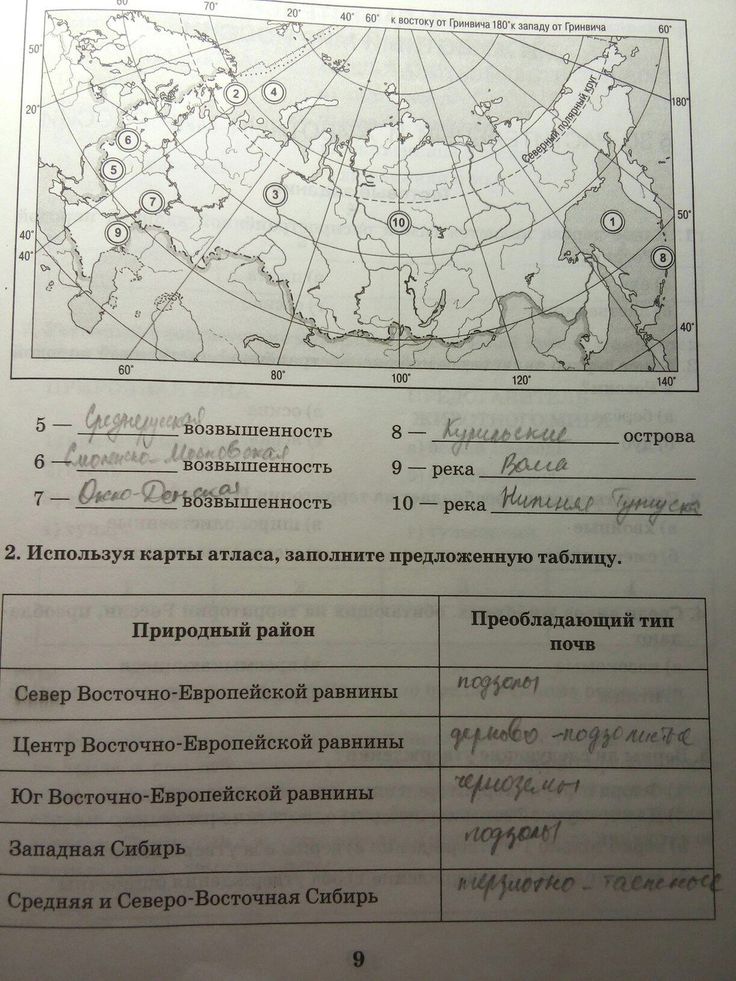 60° 70° 20° 40° 60° к востоку от Гринвича 180° к западу от Гринвича 60°
50°
20°
180°
Северный полярный круг
2 4
6
5
7
3
10
1
9
8
50°
40°
40°
40°
60° 80° 100° 120° 140°
5 — Среднерусская возвышенность
6 — Смоленско-Московская возвышенность
7 — Окско-Донская возвышенность
8 — Курильские острова
9 — река Волга
10 — река Нижняя Тунгуска
2. Используя карты атласа, заполните предложенную таблицу.
Природный район
Преобладающий тип
почв
Север Восточно-Европейской равнины подзолы
Центр Восточно-Европейской равнины дерново-подзолистые
Юг Восточно-Европейской равнины черноземы
Западная Сибирь подзолы
Средняя и Северо-Восточная Сибирь мерзлотно-таежные
9